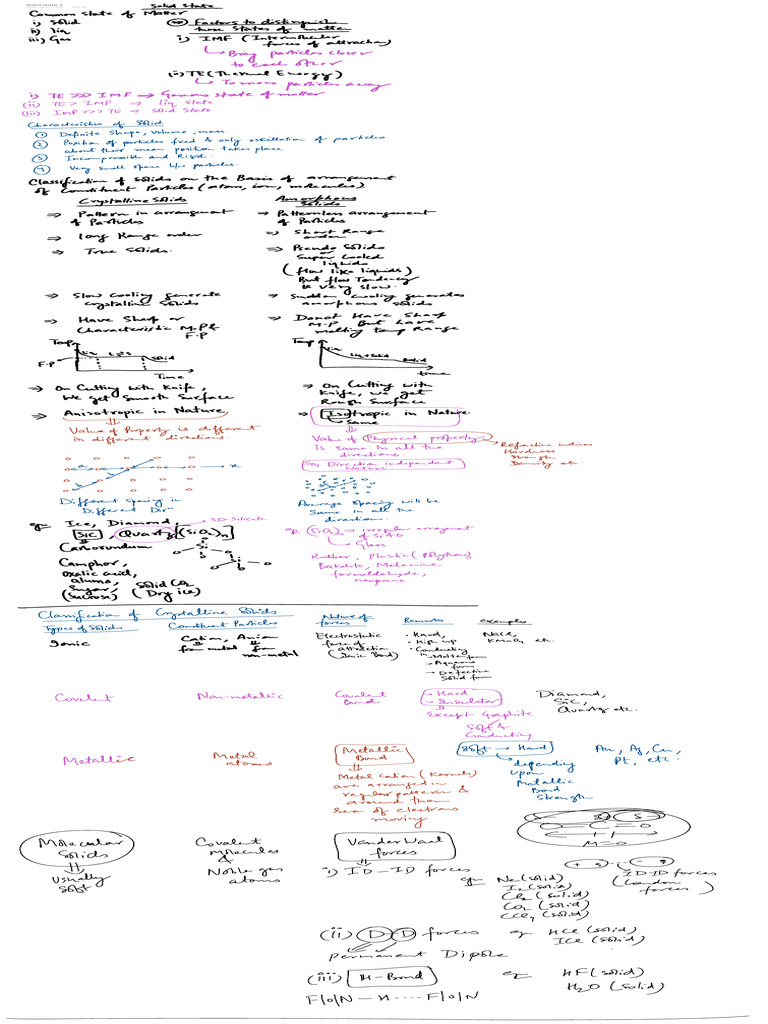 Solid State
Common State of Matter
i) Solid
ii) liq
iii) Gas
Factors to distinguish
these States of matter
i) IMF (Intermolecular
forces of attraction)
Bring particles closer
to each other
(ii) TE (Thermal Energy)
To move particles away
i) TE >>> IMF → Gaseous state of matter
(ii) TE > IMF → liq State
(iii) IMF >>> TE → Solid State
Characteristics of Solid
① Definite Shape, Volume, mass.
② Position of particles fixed & only oscillation of particles
about their mean position takes place
③ Incompressible and Rigid
④ Very small space b/w particles.
Classification of Solids on the Basis of arrangement
of Constituent Particles (atom, ion, molecules)
Crystalline Solids
⇒ Pattern in arrangement
of Particles
⇒ long Range order
⇒ True Solids.
⇒ Slow Cooling generate
crystalline Solids
⇒ Have Sharp or
Characteristic M.P &
F.P
Temp
liq L⇌S Solid
F.P
Time
⇒ On Cutting with Knife,
We get Smooth Surface
⇒ Anisotropic in Nature
Value of Property is different
in different directions.
x
Different Spacing in
Different Dirⁿ
eg Ice, Diamond,
SiC, Quartz [(SiO₂)n]
3D Silicate
Carborundum
Si
O
Camphor,
oxalic acid,
alums,
Sugar,
(Sucrose)
Solid CO₂
(Dry ice)
Amorphous
Solids
⇒ Patternless arrangement
of Particles
⇒ Short Range
order
⇒ Pseudo Solids
or
Super Cooled
liquids
(flow like liquids)
But flow Tendency
is very slow.
⇒ Sudden Cooling generates
amorphous solids
⇒ Do not Have Sharp
M.P But have
melting temp Range
Temp
liq
liq+Solid
Solid
time
⇒ On Cutting with
Knife, we get
Rough Surface
⇒ Isotropic in Nature
Same
Value of Physical property
is same in all the
directions.
Refractive indices
Hardness
Strength
Density etc.
So, Direction independent
Nature
Average spacing will be
Same in all the
direction.
eg (SiO₂)n → irregular arrangement
of Si & O
Glass
Rubber, Plastic (Polythene)
Bakelite, Melamine
formaldehyde,
neoprene
Classification of Crystalline Solids
Types of Solids
Constituent Particles
Nature of
forces
Remarks
examples
Ionic
Cation, Anion
from metal
from
non-metal
Electrostatic
force of
attraction
(Ionic Bond)
· Hard,
· High M.P
· Conducting
in → Molten form
→ Aqueous
form
→ Defective
Solid form
NaCl,
KMnO₄ etc.
Covalent
Non-metallic
Covalent
Bond
→ Hard
→ Insulator
except Graphite
Soft &
Conducting
Diamond,
SiC,
Quartz etc.
Metallic
Metal
atoms
Metallic
Bond
Metal cation (Kernels)
are arranged in
regular pattern &
around them
sea of electrons
moving
Soft → Hard
depending
upon
Metallic
Bond
Strength
Au, Ag, Cu,
Pt, etc.
Molecular
Solids
Usually
Soft
Covalent
Molecules
&
Noble gas
atoms
Vander Waal
forces
O=C=O
μ=0
i) ID – ID forces
eg Ne (solid)
I₂ (solid)
Cl₂ (solid)
CO₂ (solid)
CCl₄ (solid)
ID-ID forces
(London
forces)
(ii) D–D forces
eg HCl (solid)
ICl (solid)
permanent Dipole
(iii) H-Bond
eg HF (solid)
H₂O (solid)
F/O/N – H ····· F/O/N